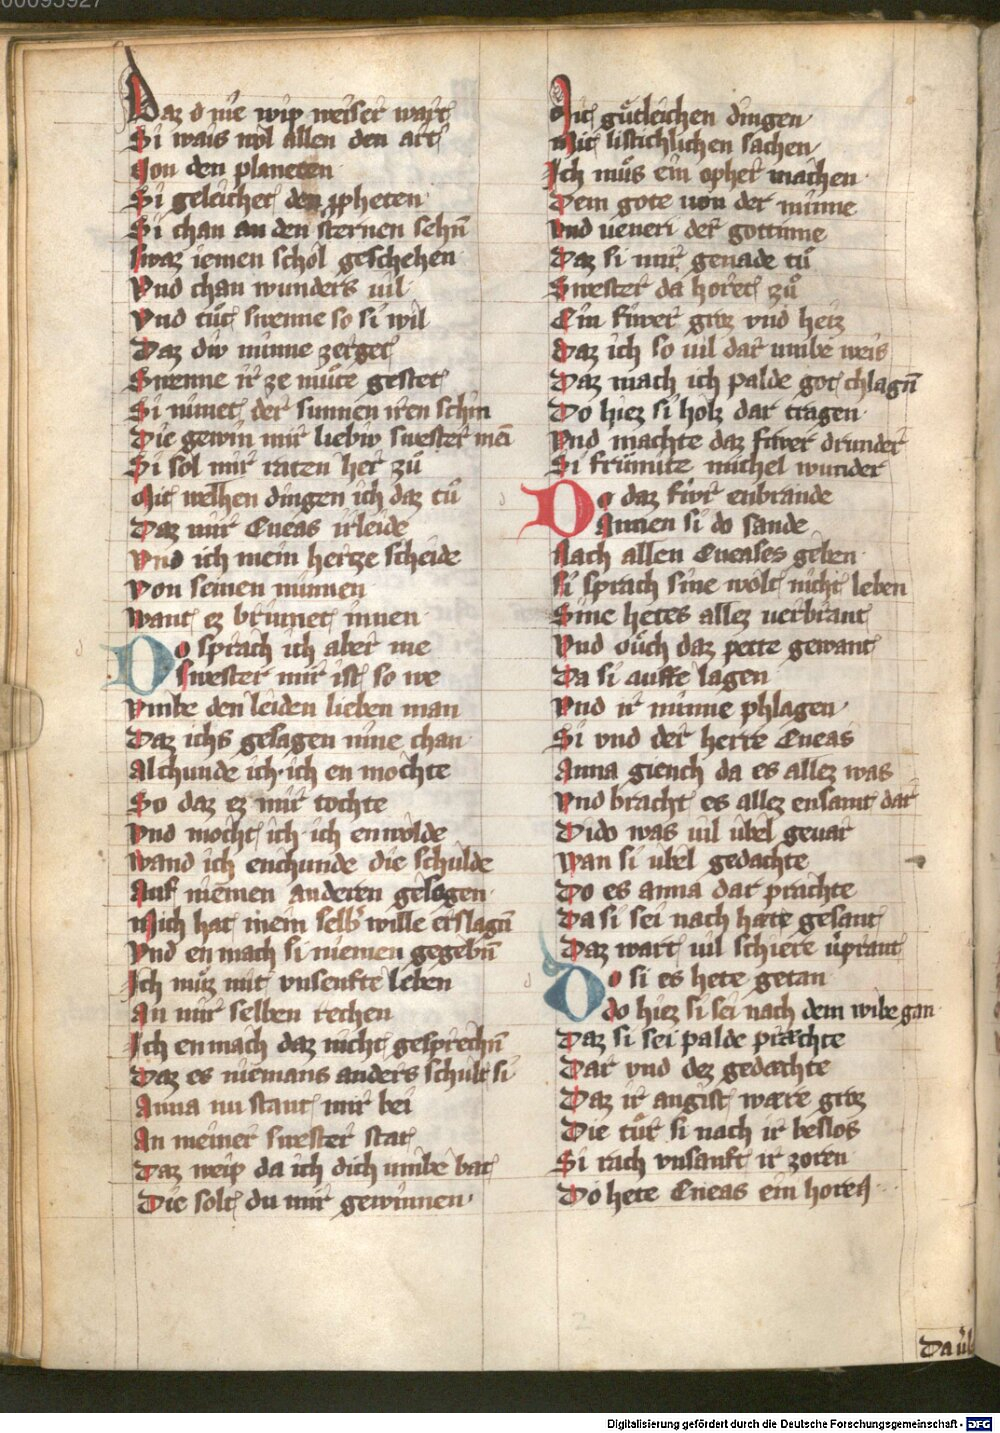 00095927
Daz d nie wip weiser wart
Si wais wol allen den art
Von den planeten
Si geleichet den ꝓpheten
Si chan an den sternen sehn̄
Swaz iemen schol geschehen
Vnd chan wunders uil
Vnd tuͦt swenne so si wil
Daz div minne zerget
Swenne ir ze muͦte gestet
Si nimet der sunnen iren schin
Die gewin mir liebiv swester mei̅
Si sol mir raten her zuͦ
Mit welhen dingen ich daz tuͦ
Daz mir Eneas irleide
Vnd ich mein hertze scheide
Von seinen minnen
Want ez brinnet innen
Do sprach ich aber me
Swester mir ist so we
Vmbe den leiden lieben man
Daz ichs gesagen nine chan
Al chunde ich · ich en mochte
So daz ez mir tochte
Vnd mocht ich · ich en wolde
Wand ich enchunde die schulde
Auf niemen anderen gelogen
Mich hat mein selb' wille erslagn̄
Vnd en mach si niemen gegebn̄
Ich muͦz mit vnsenfte leben
An mir selben rechen
Ich en mach daz nicht gesprechn̄
Daz es niemans anders schult si
Anna nu stant mir bei
An meiner swester stat
Daz weip da ich dich umbe bat
Die solt du mir gewinnen
Mit guͤtleichen dingen
Mit listichlichen sachen
Ich muͦs ein opher machen
Dem gote uon der minne
Vnd ueneri der gottinne
Daz si mir genade tuͦ
Swester da horet zuͦ
Ein fiwer groz vnd heiz
Daz ich so uil dar umbe weis
Daz mach ich palde got chlagn̄
Do hiez si holz dar tragen
Vnd machte daz fiwer drunder
Si frumite michel wunder
Do daz fiwr enbrande
Annen si do sande
Nach allen Eneases geben
Si sprach sine wolt nicht leben
Sine hetes allez uerbrant
Vnd ouͦch daz pette gewant
Da si auffe lagen
Vnd ir minne phlagen
Si vnd der herre Eneas
Anna giench da es allez was
Vnd bracht es allez ensamt dar
Dido was uil ubel geuar
Wan si ubel gedachte
Do es anna dar prachte
Da si sei nach hate gesant
Daz wart uil schiere u̓prant
Do si es hete getan
Do hiez si sei nach dem wibe gan
Daz si sei palde præchte
Dar vnd dez gedæchte
Daz ir angist wære groz
Die tuͤr si nach ir beslos
Si rach vnsanft ir zoren
Do hete Eneas ein horen
Da u̓l
Digitalisierung gefördert durch die Deutsche Forschungsgemeinschaft - DFG